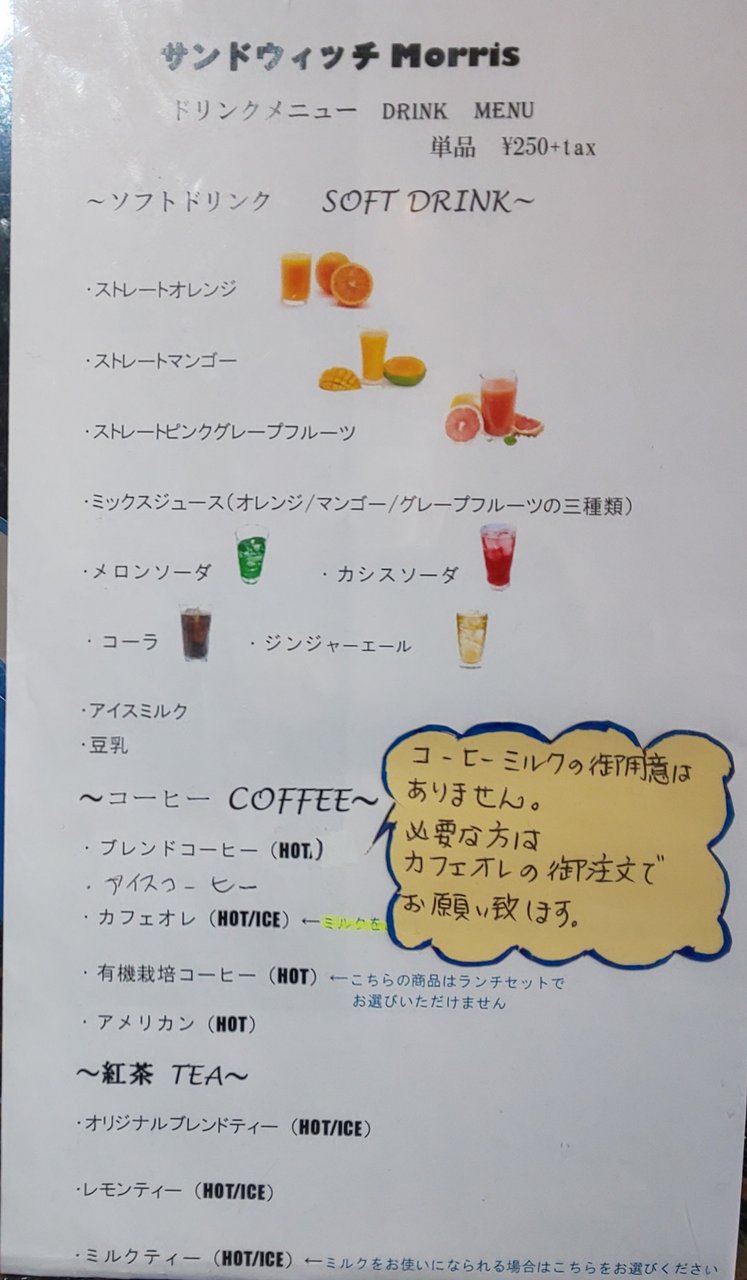 サンドウィッチ Morris
ドリンクメニュー DRINK MENU
単品 ¥250+tax
～ソフトドリンク SOFT DRINK～
・ストレートオレンジ
・ストレートマンゴー
・ストレートピンクグレープフルーツ
・ミックスジュース(オレンジ/マンゴー/グレープフルーツの三種類)
・メロンソーダ ・カシスソーダ
・コーラ ・ジンジャーエール
・アイスミルク
・豆乳
コーヒーミルクの御用意は
ありません。
必要な方は
カフェオレの御注文で
お願い致します。
～コーヒー COFFEE～
・ブレンドコーヒー(HOT)
・アイスコーヒー
・カフェオレ(HOT/ICE)←ミルクを
・有機栽培コーヒー(HOT)←こちらの商品はランチセットで
お選びいただけません
・アメリカン(HOT)
～紅茶 TEA～
・オリジナルブレンドティー(HOT/ICE)
・レモンティー(HOT/ICE)
・ミルクティー(HOT/ICE)←ミルクをお使いになられる場合はこちらをお選びください